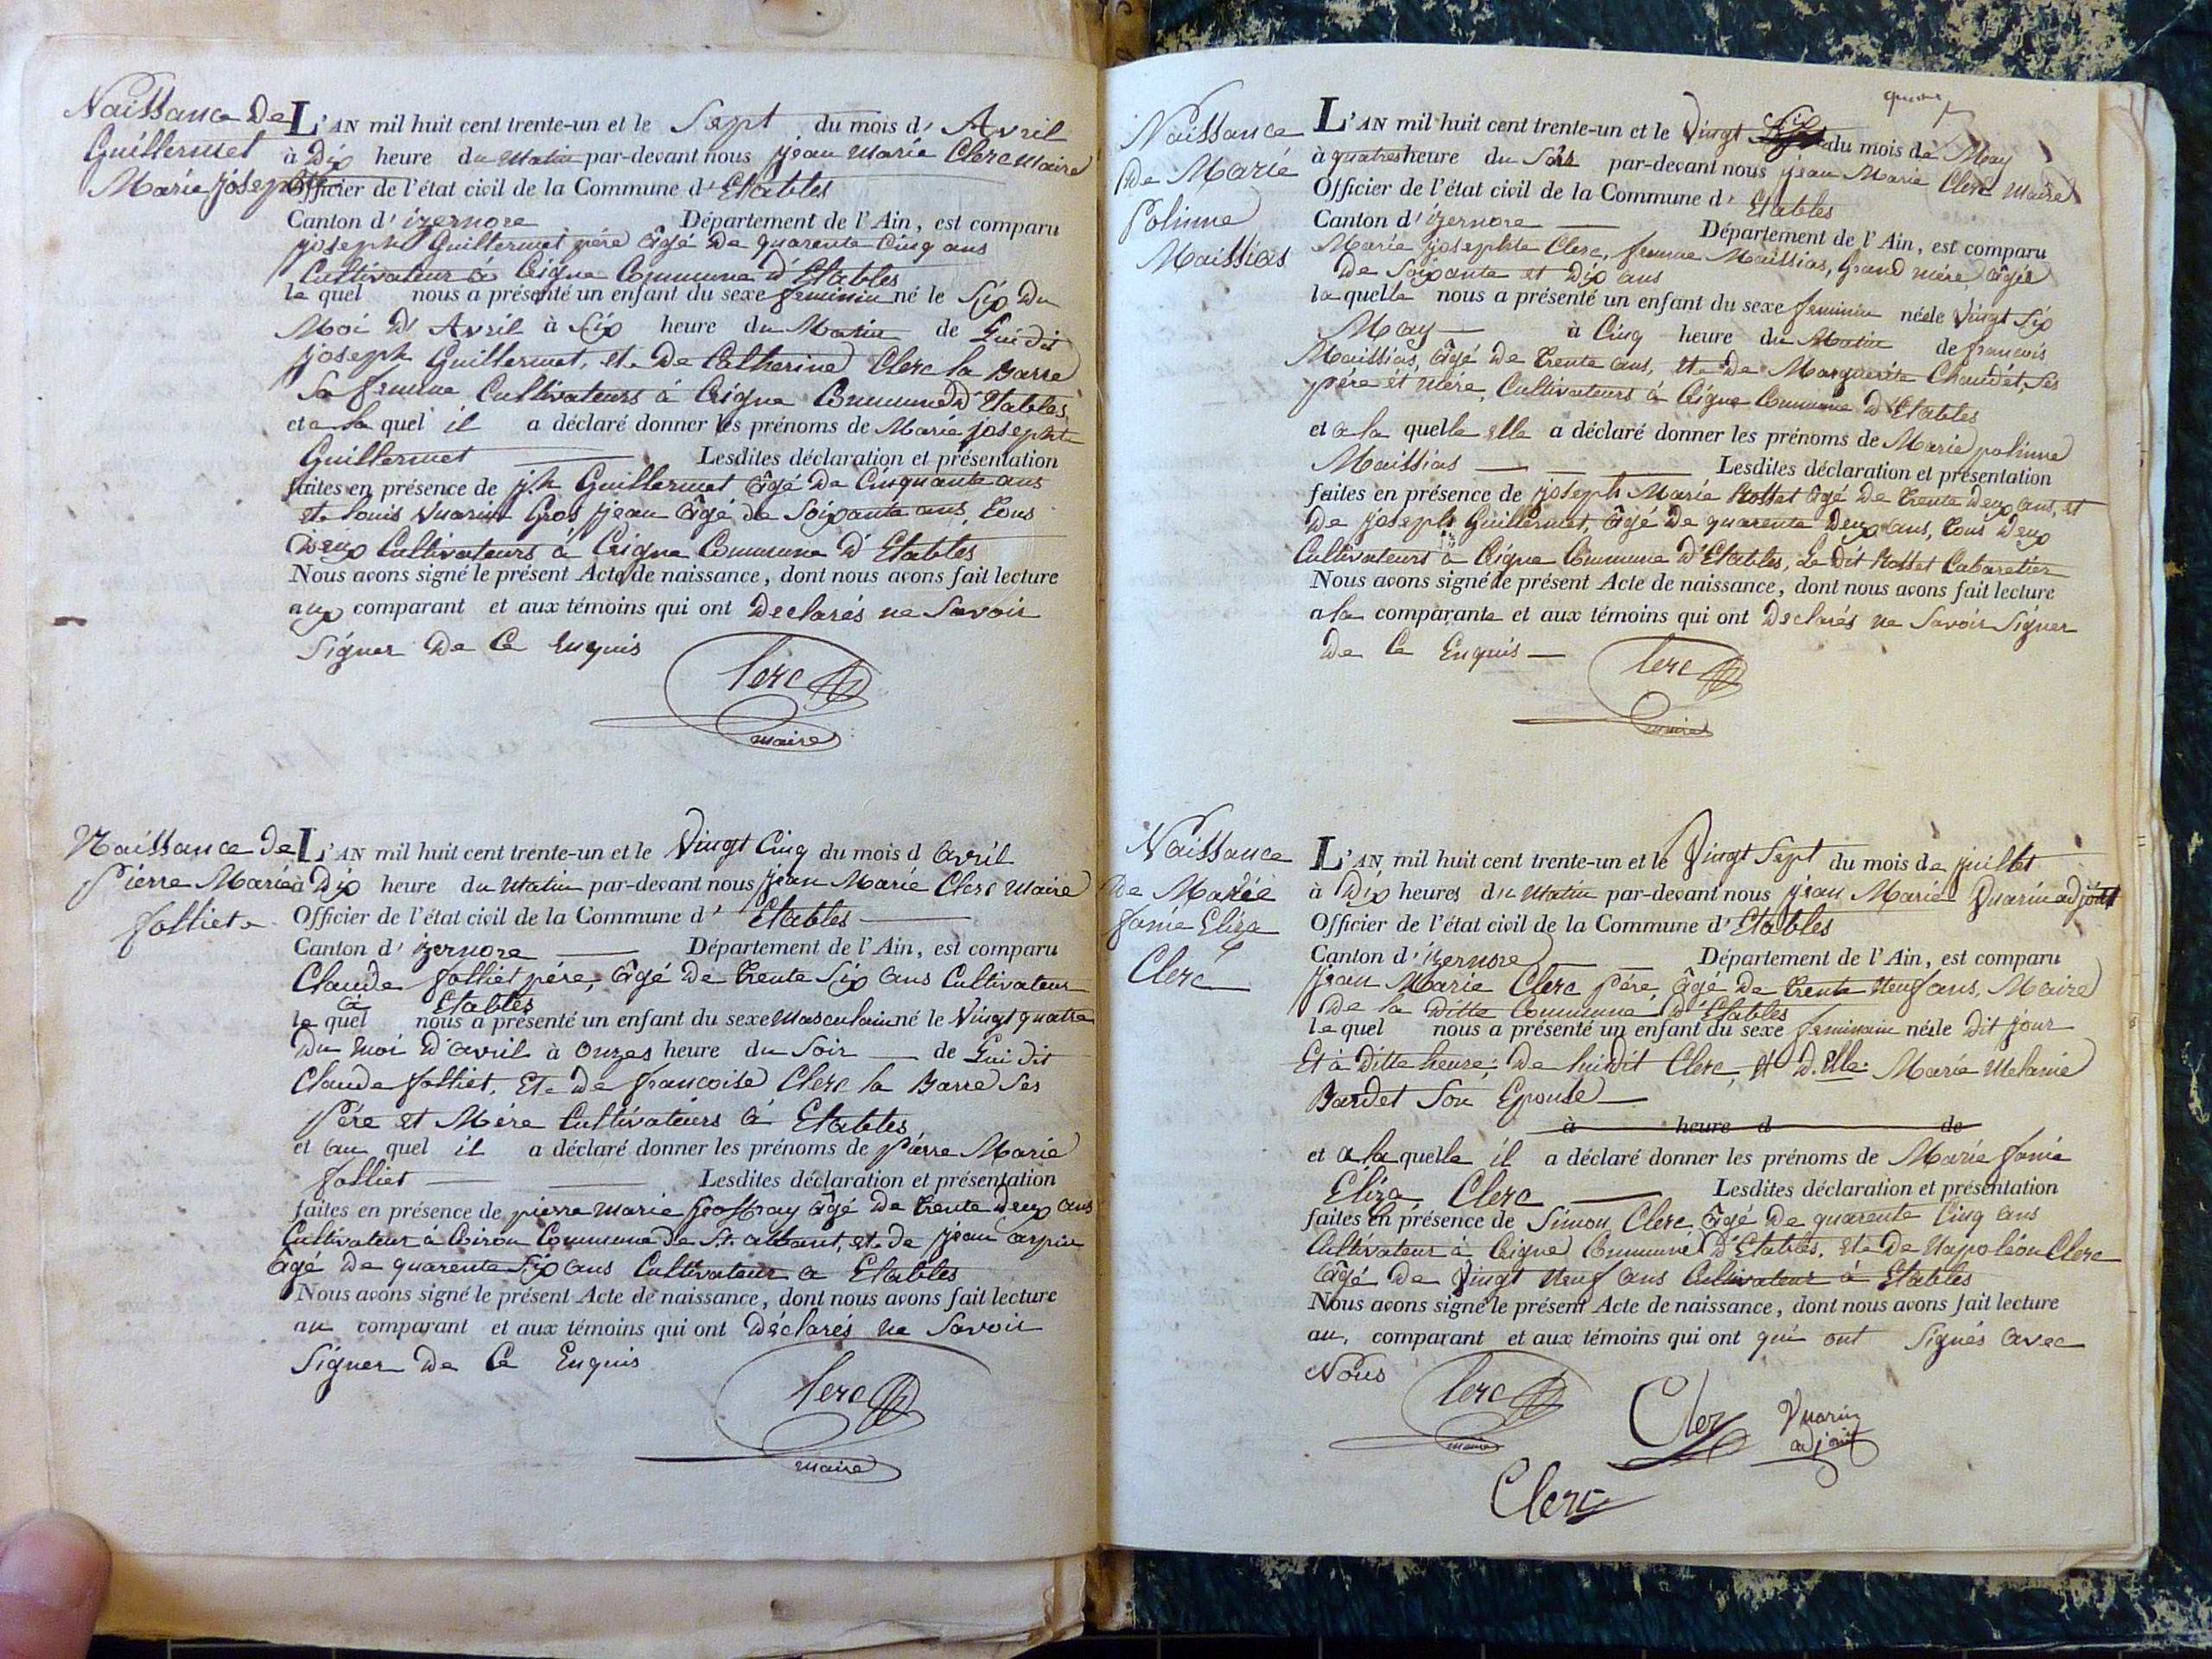 Naissance De
Guillermet
Marie josephte
L'AN mil huit cent trente-un et le Sept du mois d' Avril
à Dix heure du Matin par-devant nous jean Marie Clerc Maire
Officier de l'état civil de la Commune d' Etables
Canton d' izernore Département de l'Ain, est comparu
joseph Guillermet pére âgé De quarente Cinq ans
Cultivateur à Ceigne Commune d'Etables
le quel nous a présenté un enfant du sexe feminin né le Six Du
Moi D' Avril à Six heure du Matin de Lui dit
joseph Guillermet, et De Catherine Clerc la Barre
Sa femme Cultivateurs à Ceigne Commune D'Etables
et a la quel il a déclaré donner les prénoms de Marie josephte
Guillermet Lesdites déclaration et présentation
faites en présence de j.h Guillermet âgé De Cinquante ans
et Louis Vuarin Gros jean âgé de Soixante ans, tous
Deux Cultivateurs à Ceigne Commune D'Etables
Nous avons signé le présent Acte de naissance, dont nous avons fait lecture
aux comparant et aux témoins qui ont Declarés ne Savoir
Signer De Ce Enquis
Clerc
maire
Naissance De
Pierre Marie
folliet
L'AN mil huit cent trente-un et le Vingt Cinq du mois d avril
à Dix heure du Matin par-devant nous jean Marie Clerc Maire
Officier de l'état civil de la Commune d' Etables
Canton d' izernore Département de l'Ain, est comparu
Claude folliet pére, âgé De trente Six ans Cultivateur
à Etables
le quel nous a présenté un enfant du sexe Masculain né le Vingt quatre
Du Moi D'avril à Onzes heure du Soir de Lui dit
Claude folliet, Et De francoise Clerc la Barre Ses
Pére et Mére Cultivateurs à Etables
et au quel il a déclaré donner les prénoms de Pierre Marie
folliet Lesdites déclaration et présentation
faites en présence de pierre marie âgé De trente Deux ans
Cultivateur à Ciron Commune De St. albant, et de jean arpin
âgé De quarente Six ans Cultivateur a Etables
Nous avons signé le présent Acte de naissance, dont nous avons fait lecture
au comparant et aux témoins qui ont Déclarés ne Savoir
Signer De Ce Enquis
Clerc
maire
Naissance
De Marie
Polinne
Maissias
L'AN mil huit cent trente-un et le Vingt Six du mois de May
à quatres heure du Soir par-devant nous jean Marie Clerc Maire
Officier de l'état civil de la Commune d' Etables
Canton d' izernore Département de l'Ain, est comparu
Marie josephte Clerc, femme Maissias, Grand mére, âgée
De Soixante et Dix ans
la quelle nous a présenté un enfant du sexe feminin née le Vingt Six
May à Cinq heure du Matin de francois
Maissias, âgé De trente ans, et De Marguerite Chaudet, Ses
pére et mére, Cultivateurs à Ceigne Commune D'Etables
et a la quelle elle a déclaré donner les prénoms de Marie polinne
Maissias Lesdites déclaration et présentation
faites en présence de joseph Marie Rosset âgé De trente Deux ans, et
De joseph Guillermet, âgé De quarente Deux ans, tous Deux
Cultivateurs à Ceigne Commune D'Etables, Le Dit Rosset Cabaretier
Nous avons signé le présent Acte de naissance, dont nous avons fait lecture
a la comparante et aux témoins qui ont Declarés ne Savoir Signer
De Ce Enquis
Clerc
maire
Naissance
De Marie
fanie Eliza
Clerc
L'AN mil huit cent trente-un et le Vingt Sept du mois de juillet
à Dix heures du Matin par-devant nous jean Marie Vuarin adjoint
Officier de l'état civil de la Commune d' Etables
Canton d' izernore Département de l'Ain, est comparu
jean Marie Clerc Pére, âgé De trente Neuf ans, Maire
De la Ditte Commune D'Etables
le quel nous a présenté un enfant du sexe feminain née le Dit jour
Et à Ditte heure; De lui dit Clerc, et D. Elle: Marie Melanie
Bardet Son Epouse
à heure d de
et a la quelle il a déclaré donner les prénoms de Marie fanie
Eliza Clerc Lesdites déclaration et présentation
faites en présence de Simon Clerc âgé De quarente Cinq ans
Cultivateur à Ceigne Commune D'Etables, et De Napoléon Clerc
âgé De Vingt Neuf ans Cultivateur à Etables
Nous avons signé le présent Acte de naissance, dont nous avons fait lecture
au comparant et aux témoins qui ont qui ont Signés avec
Nous
Clerc
maire
Clerc
Vuarin
adjoint
Clerc